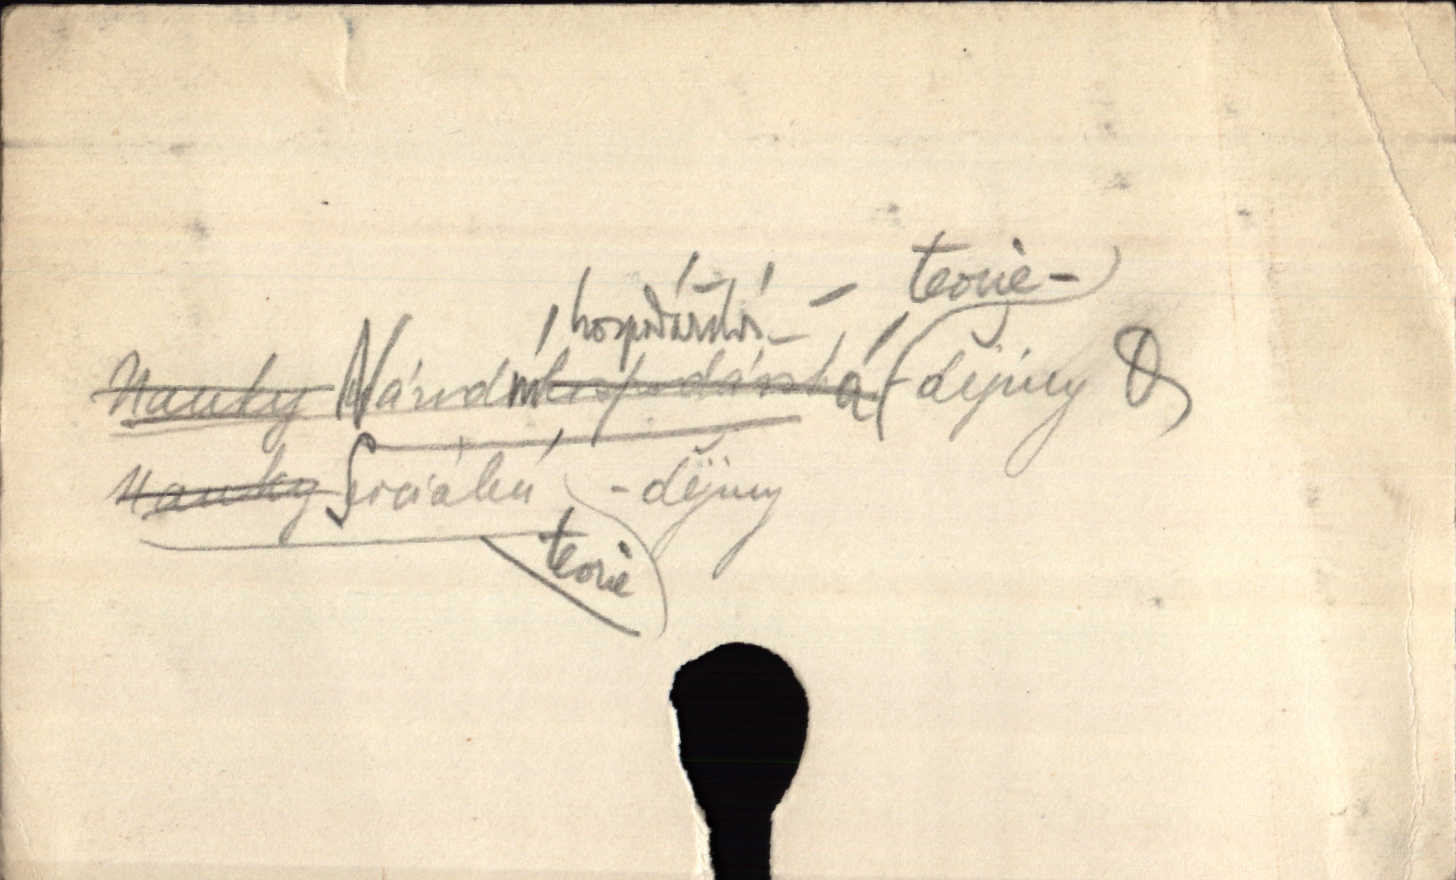 hospodářství - teorie -
Nauky Národní hospodářská - dějiny
Nauky Sociální - dějiny
teorie